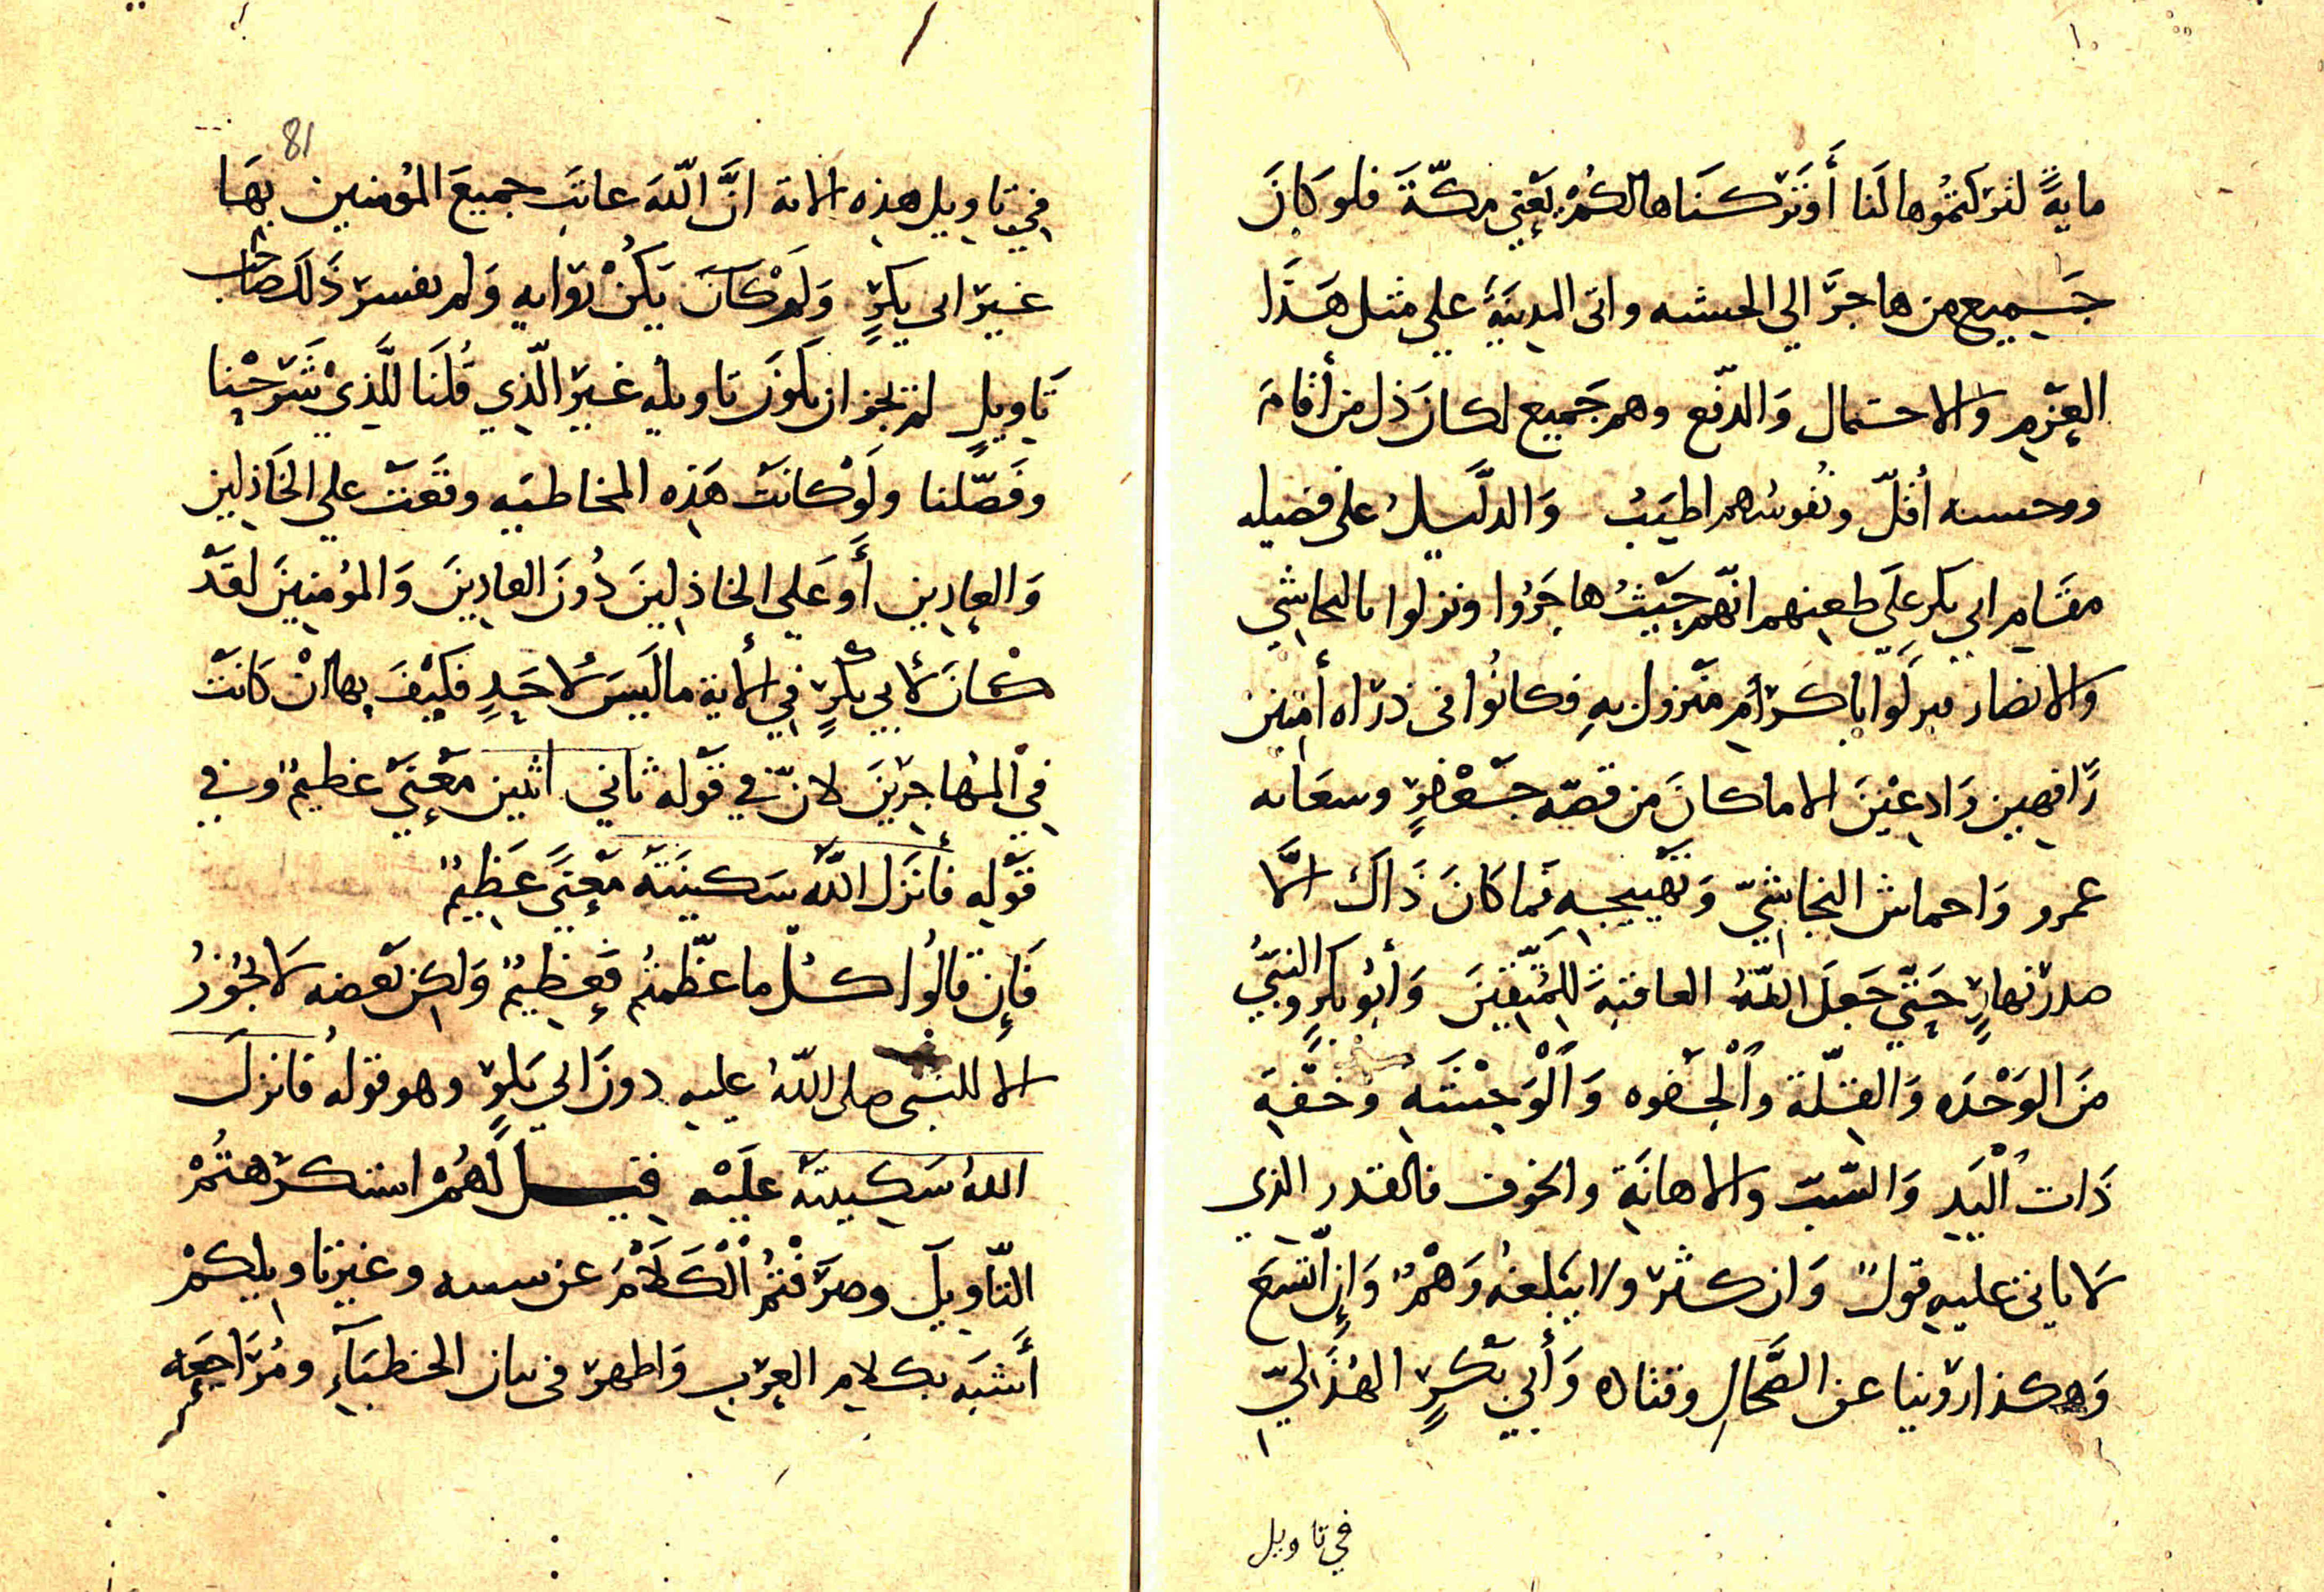 مايةً لتركتموها لَنا أَوتَركنَاها لكُمْ يَعْنِي مكّةَ فلو كانَ
جَميع من هاجرَ الي الحبشه واتى المدينَة علي مثل هَذَا
العزم والاحتمال وَالدفع وهم جَميع لكان ذل من أقامَ
ووحسه أقلّ ونُفوسُهم اطيَبُ وَالدلَّيلُ على فضيله
مقَام ابي بكر عَلَي طعنهم انّهم حَيْثُ هاجَرُوا ونزلوا بالنجاشي
والانصار نَزلَوا باكرَم منزول بهِ فكانُوا فى ذرَاه أمنين
رَافهين وَادعَيْنَ الا ما كانَ من قصّه جَعْفرٍ وسعَايه
عمرو وَاحماش النجاشيّ وَتَهْييجهِ فما كانَ ذَاكَ الّا
صدرَ نهارٍ حَتّي جَعلَ اللّهُ العاقبةَ للمُتّقينَ وَأبُو بَكرٍ والنبيُّ
منَ الوَحْدَه وَالقلّة وَالْجفوه وَالْوَحْشَه وَخفّةِ
ذَات الْيَدِ وَالسّبّ والاهانَةِ والخوف فالقدر الذي
لَا ياتي عليهِ قولٌ وَان كثرَ ولا يَبلغهُ وَهْمٌ وَإِن اتّسَعَ
وَهكذا روَينا عن الضّحاكِ وقتاده وَأَبي بَكرٍ الهُذَليّ
في تاويل
81
في تاويل هذِه الاية انَّ اللّهَ عاتبَ جميعَ المؤمنين بهَا
غيرَ ابي بكرٍ وَلَوْ كانَ يَكُنْ ثوَابه وَلم يفسرَ ذَلكَ صَاحب
تَاويلٍ لم يَجُز ان يَكونَ تاويله غيرَ الّذي قُلنَا للَّذي شَرَحْنا
وفَصّلنا ولَوْ كانَتْ هَذِه المخاطبَه وقَعَتْ علي الخَاذلين
وَالعادين أَو عَلي الخاذلينَ دُونَ العادِينَ وَالمؤمنِينَ لقَدْ
كانَ لأبي بَكرٍ في الأية ما لَيسَ لاحَدٍ فَكَيْفَ بها انْ كانَتْ
في المُهاجرَينَ لانّ في قَوْله ثاني اثنين مَعْنَيً عظيمٌ وفي
قَوْلهِ فأنزَل اللّهُ سَكينَتَهُ مَعْنَيً عَظيمٌ
فَإِن قالُوا كُلّ ما عظّمتُم فَعَظيمٌ وَلكِن بَعضه لَا يَجُوزُ
الا للنبى صلى اللّهُ عليهِ دونَ ابي بَكرٍ وهو قَولهُ فانزلَ
اللهُ سَكينتهُ علَيْهِ قيل لَهُمْ استكرَهتُمْ
التّاويلَ وصرَفْتُمُ الْكَلَامَ عن سننه وغيرَ تاويلكمْ
أَشبَه بكلامِ العرَب وَاظهرَ فى بيان الخطبَآءِ ومُرَاجعَه